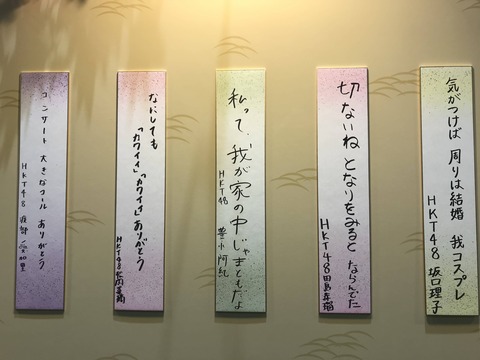 気がつけば 周りは結婚 我コスプレ
HKT48 坂口理子
切ないね となりをみると ならんでた
HKT48 田島芽瑠
私って、我が家の中じゃまともだよ
HKT48 豊永阿紀
なにしても
「カワイイ」「カワイイ」ありがとう
HKT48
コンサート 大きなコール ありがとう
HKT48 渡部 愛加里